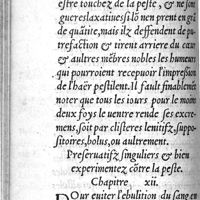 estre touchez de la peste, & ne soñ
guereslaxatiues si lõ nen prent en grã
de quãtité, mais ilz deffendent de pu
trefaction & tirent arriere du cœur
& autres mẽbres nobles les humeurs
qui pourroient recepuoir l'impressiõ
de l'haër pestilent. Il fault finablemẽt
noter que tous les iours pour le moins
deux foys le uentre rende ses excre-
mens, soit par clisteres lenitifz, suppo-
sitoires, bolus, ou aultrement.
Preseruatifz singuliers & bien
experimentez cõtre la peste.
Chapitre xii.
POur euiter l'ebulition du sang en